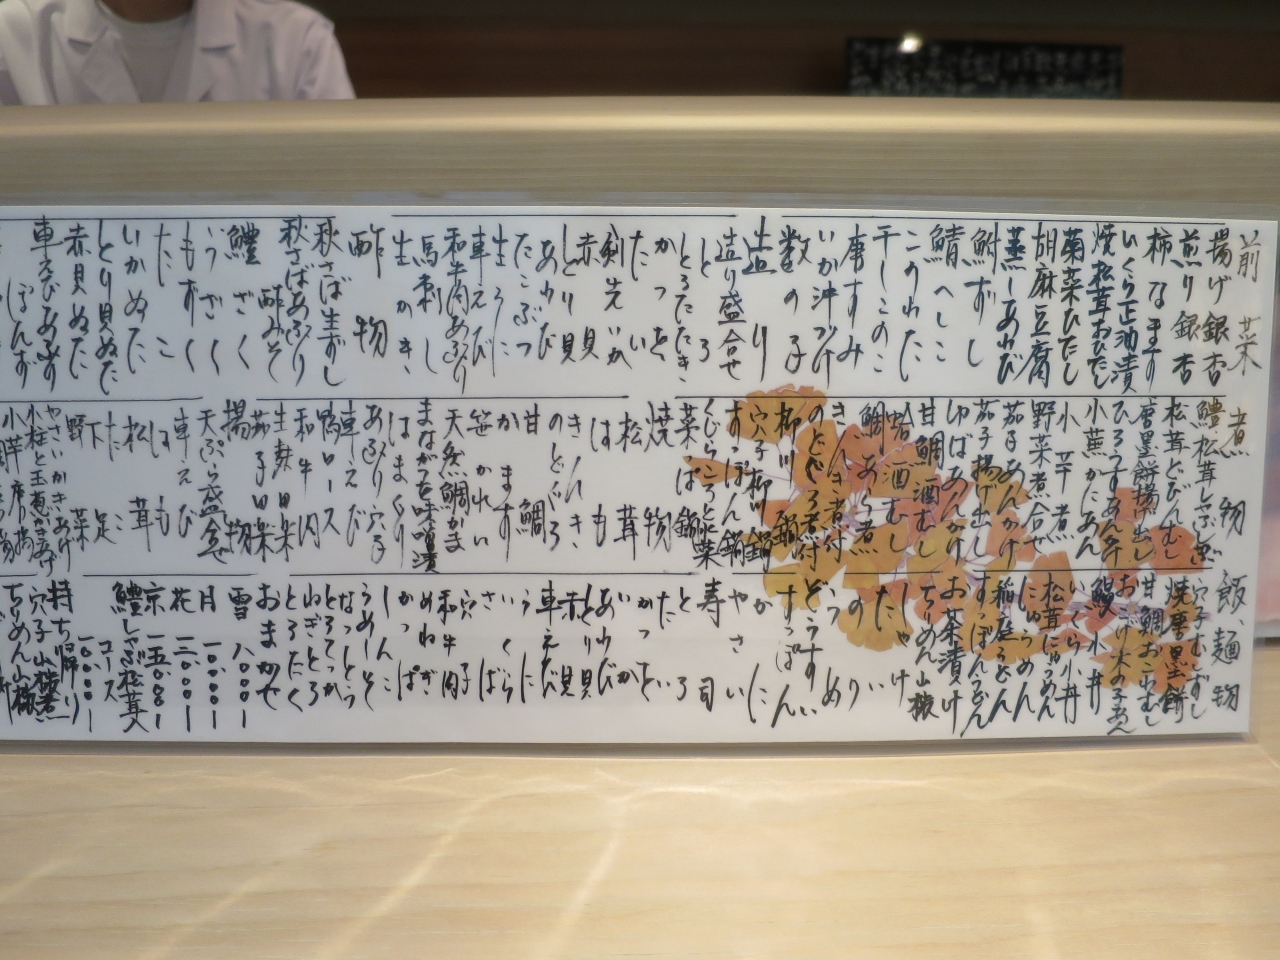 前菜
揚げ銀杏
煎り銀杏
柿なます
いくら正油漬
焼松茸おひたし
菊菜ひたし
胡麻豆腐
蒸しあわび
鮒ずし
鯖へしこ
このわた
干しこのこ
唐すみ
いか沖づけ
数の子
造り
造り盛合せ
とろ
とろたたき
かつを
たい
剣先いか
赤貝
とり貝
あわび
たこぶつ
生うに
車えび
和牛肉あぶり
馬刺し
生かき
酢物
秋さば生ずし
秋さばあぶり
鱧酢みそ
鱧ざく
うざく
もずく
たこ
いかぬた
とり貝ぬた
赤貝ぬた
車えびあわす
ぽんず
煮物
鱧松茸しゃぶ
松茸どびんむし
唐墨餅揚げ出し
ひろうすあんかけ
小蕪かにあん
小芋煮
野菜煮合せ
茄子あんかけ
茄子揚げ出し
ゆばあんかけ
甘鯛酒むし
蛤酒むし
鯛あら煮
きんき煮付
のどぐろ煮付
柳川鍋
穴子柳川鍋
すっぽん鍋
くじらころと水菜
菜は鍋
焼物
松茸
はも
きんき
のどぐろ
甘鯛
かます
笹かれい
天然鯛かま
まながつを味噌漬
はまぐり
あぶり穴子
車えび
鴨ロース
和牛肉
生麩田楽
茄子田楽
揚物
天ぷら盛合せ
車えび
はも
松茸
たこ足
野菜
やさいかきあげ
小柱と玉葱かきあげ
小芋唐揚
飯、麺物
穴子むずし
焼唐墨餅
甘鯛おこわむし
鰻小丼
いくら小丼
松茸にゅうめん
にゅうめん
稲庭うどん
すっぽんうどん
お茶漬け
ちりめん山椒
しゃけ
たい
のり
うめ
どうすい
すっぽん
かに
やさい
寿司
とろ
たい
かつを
いか
あわび
とり貝
赤貝
車えび
うに
いくら
さば
穴子
和牛肉
めねぎ
かっぱ
しんこ
うめしそ
なっとう
とろてっか
ねぎとろ
とろたく
おまかせ
雪 八〇〇〇|
月 一〇〇〇〇|
花 一三〇〇〇|
京 一五〇〇〇|
鱧しゃぶ松茸入
コース
一〇〇〇〇|
持ち帰り
穴子山椒煮
ちりめん山椒